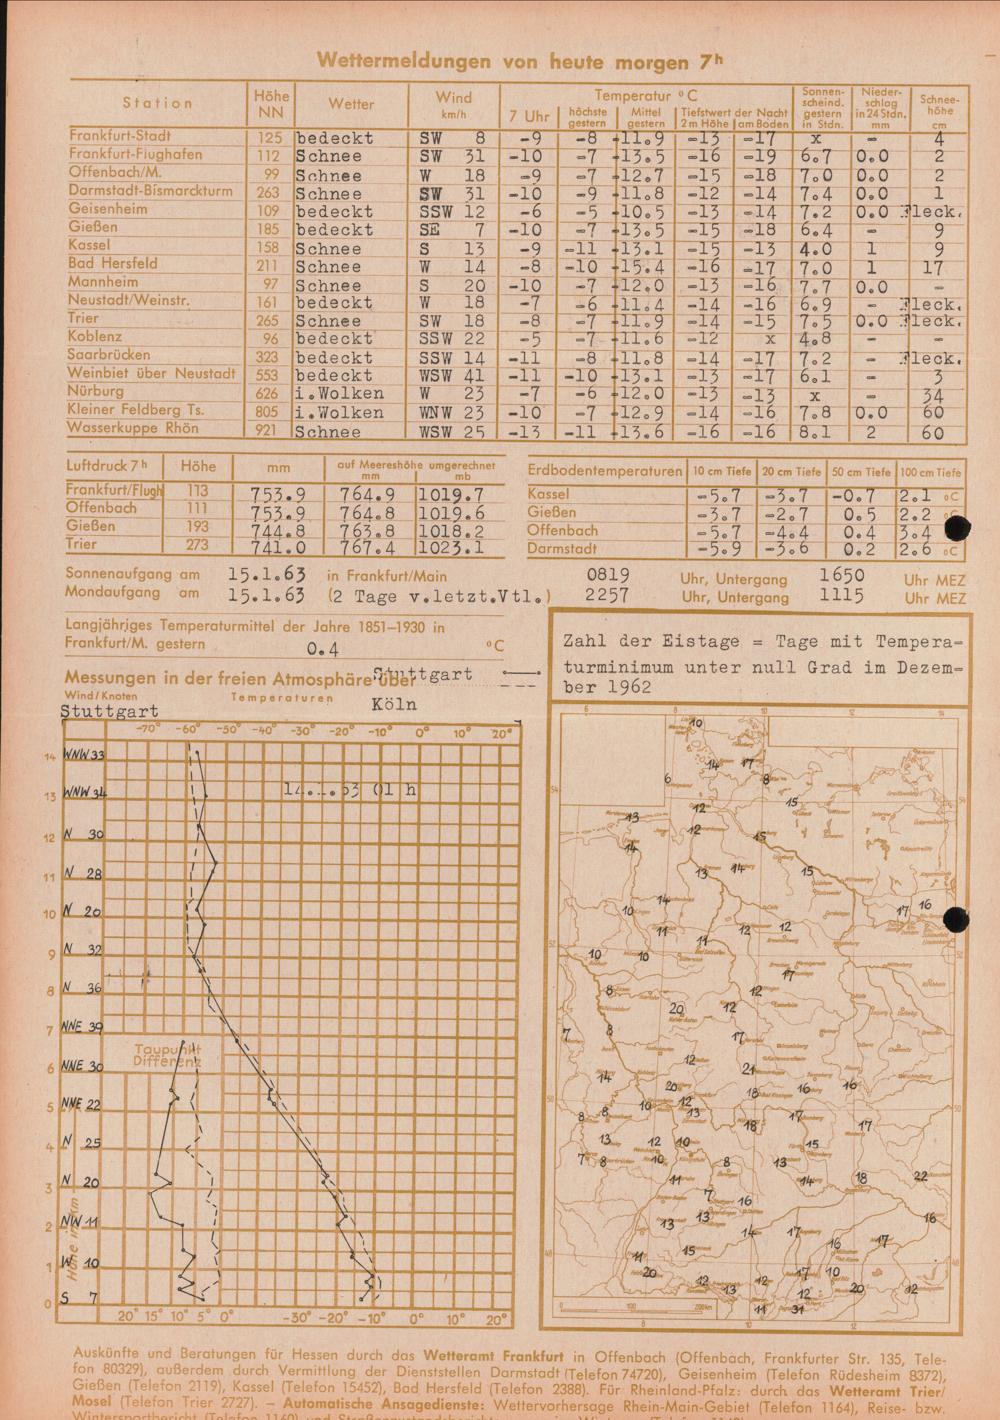 Wettermeldungen von heute morgen 7ʰ
Station Höhe NN Wetter Wind km/h Temperatur °C Sonnenscheind. gestern in Stdn. Niederschlag in 24 Stdn. mm Schneehöhe cm
7 Uhr höchste gestern Mittel gestern Tiefstwert der Nacht 2 m Höhe am Boden
Frankfurt-Stadt 125 bedeckt SW 8 -9 -8 -11.9 -13 -17 x - 4
Frankfurt-Flughafen 112 Schnee SW 31 -10 -7 -13.5 -16 -19 6.7 0.0 2
Offenbach/M. 99 Schnee W 18 -9 -7 -12.7 -15 -18 7.0 0.0 2
Darmstadt-Bismarckturm 263 Schnee SW 31 -10 -9 -11.8 -12 -14 7.4 0.0 1
Geisenheim 109 bedeckt SSW 12 -6 -5 -10.5 -13 -14 7.2 0.0 Fleck.
Gießen 185 bedeckt SE 7 -10 -7 -13.5 -15 -18 6.4 - 9
Kassel 158 Schnee S 13 -9 -11 -13.1 -15 -13 4.0 1 9
Bad Hersfeld 211 Schnee W 14 -8 -10 -15.4 -16 -17 7.0 1 17
Mannheim 97 Schnee S 20 -10 -7 -12.0 -13 -16 7.7 0.0 -
Neustadt/Weinstr. 161 bedeckt W 18 -7 -6 -11.4 -14 -16 6.9 - Fleck.
Trier 265 Schnee SW 18 -8 -7 -11.9 -14 -15 7.5 0.0 Fleck.
Koblenz 96 bedeckt SSW 22 -5 -7 -11.6 -12 x 4.8 - -
Saarbrücken 323 bedeckt SSW 14 -11 -8 -11.8 -14 -17 7.2 - Fleck.
Weinbiet über Neustadt 553 bedeckt WSW 41 -11 -10 -13.1 -13 -17 6.1 - 3
Nürburg 626 i.Wolken W 23 -7 -6 -12.0 -13 -13 x - 34
Kleiner Feldberg Ts. 805 i.Wolken WNW 23 -10 -7 -12.9 -14 -16 7.8 0.0 60
Wasserkuppe Rhön 921 Schnee WSW 25 -13 -11 -13.6 -16 -16 8.1 2 60
Luftdruck 7ʰ Höhe mm auf Meereshöhe umgerechnet mm mb
Frankfurt/Flugh 113 753.9 764.9 1019.7
Offenbach 111 753.9 764.8 1019.6
Gießen 193 744.8 763.8 1018.2
Trier 273 741.0 767.4 1023.1
Erdbodentemperaturen 10 cm Tiefe 20 cm Tiefe 50 cm Tiefe 100 cm Tiefe
Kassel -5.7 -3.7 -0.7 2.1 °C
Gießen -3.7 -2.7 0.5 2.2 °C
Offenbach -5.7 -4.4 0.4 3.4
Darmstadt -5.9 -3.6 0.2 2.6 °C
Sonnenaufgang am 15.1.63 in Frankfurt/Main 0819 Uhr, Untergang 1650 Uhr MEZ
Mondaufgang am 15.1.63 (2 Tage v.letzt.Vtl.) 2257 Uhr, Untergang 1115 Uhr MEZ
Langjähriges Temperaturmittel der Jahre 1851–1930 in
Frankfurt/M. gestern 0.4 °C
Messungen in der freien Atmosphäre über Stuttgart
Wind/Knoten Temperaturen Köln
Stuttgart
-70° -60° -50° -40° -30° -20° -10° 0° 10° 20°
14 WNW 33
13 WNW 34
01 h
12 N 30
11 N 28
10 N 20
9 N 32
8 N 36
7 NNE 39
Taupunkt
Differenz
6 NNE 30
5 NNE 22
4 N 25
3 N 20
2 NW 11
1 W 10
0 S 7
Höhe in km
20° 15° 10° 5° 0° -30° -20° -10° 0° 10° 20°
Zahl der Eistage = Tage mit Tempera-
turminimum unter null Grad im Dezem-
ber 1962
6 8 10 12 14
10
14 17
6 8
15
12
13 12 15
14
13 14 15
14
10 17 16
11 12 12
11
10 10
17
8 12
20 12
7 8 17
12 21
14 20 18 16 16
10 12
8 8 13 18 17 17
13 12 10 15
7 8 10 8 13
11 14 18 22
7 16
13 13 14 17 16
15 16 17
11
20 12 13 12 17 10 20 12
12
11 31
0 100 200km
Auskünfte und Beratungen für Hessen durch das Wetteramt Frankfurt in Offenbach (Offenbach, Frankfurter Str. 135, Tele-
fon 80329), außerdem durch Vermittlung der Dienststellen Darmstadt (Telefon 74720), Geisenheim (Telefon Rüdesheim 8372),
Gießen (Telefon 2119), Kassel (Telefon 15452), Bad Hersfeld (Telefon 2388). Für Rheinland-Pfalz: durch das Wetteramt Trier/
Mosel (Telefon Trier 2727). – Automatische Ansagedienste: Wettervorhersage Rhein-Main-Gebiet (Telefon 1164), Reise- bzw.